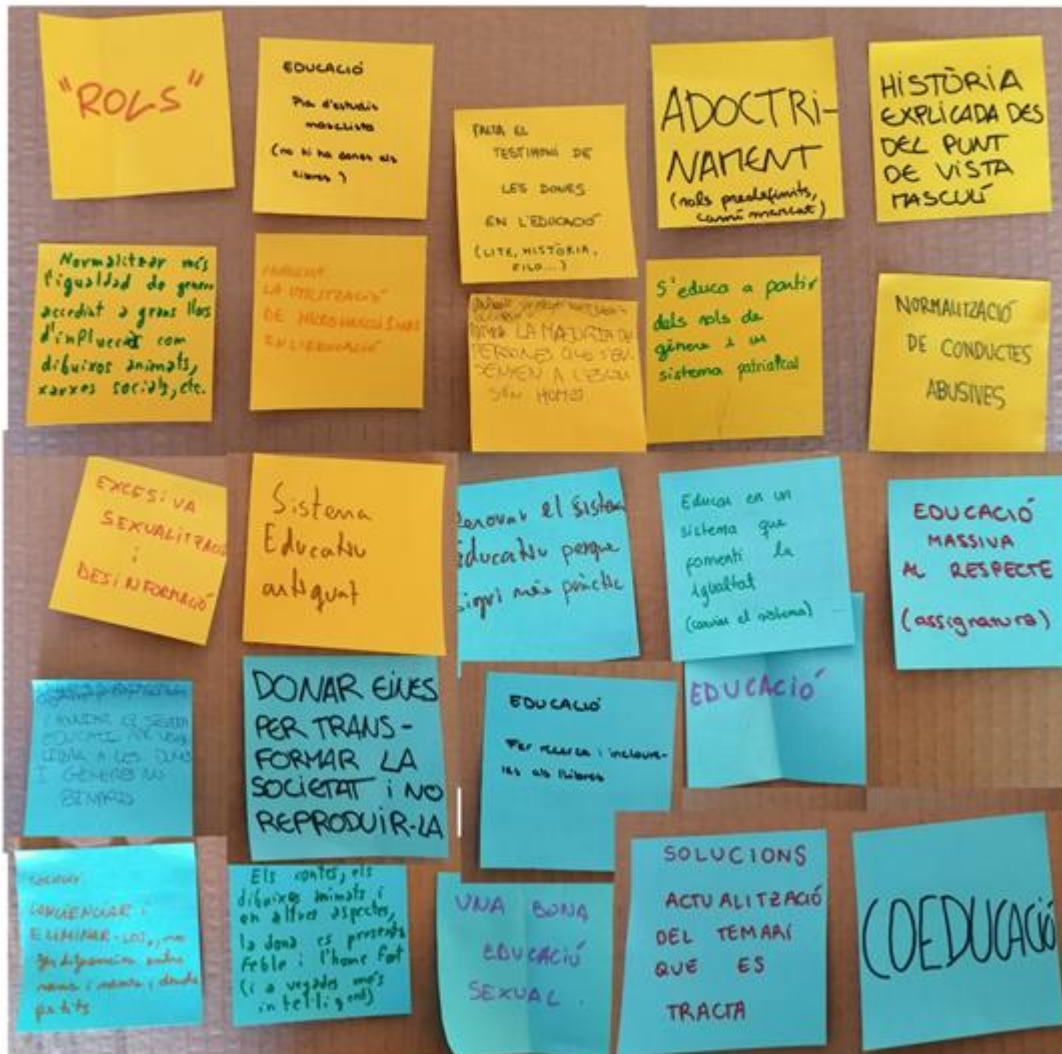 "ROLS"
EDUCACIÓ
Pla d'estudis
masclista
(no hi ha dones als
llibres)
FALTA EL
TESTIMONI DE
LES DONES
EN L'EDUCACIÓ
(LITE, HISTÒRIA,
FILO...)
ADOCTRI-
NAMENT
(rols predefinits,
camí marcat)
HISTÒRIA
EXPLICADA DES
DEL PUNT
DE VISTA
MASCULÍ
Normalitzar més
l'igualdad de genere
accedint a grans llocs
d'influccies com
dibuixos animats,
xarxes socials, etc.
LA UTILITZACIÓ
DE MICROMASCLISMES
EN L'EDUCACIÓ
LA MAJORIA DE
PERSONES QUE S'EN
SENYEN A L'ESCOLA
SÓN HOMES
S'educa a partir
dels rols de
gènere i un
sistema patriarcal
NORMALITZACIÓ
DE CONDUCTES
ABUSIVES
EXCESIVA
SEXUALITZACIÓ
i
DESINFORMACIÓ
Sistema
Educatiu
antiquat
renovar el sistema
educatiu perque
sigui més pràctic
Educar en un
sistema que
fomenti la
igualtat
(canviar el sistema)
EDUCACIÓ
MASSIVA
AL RESPECTE
(assignatura)
CANVIAR EL SISTEMA
EDUCATIU PER
A LES DONES
I GÈNERES NO
BINARIS
DONAR EINES
PER TRANS-
FORMAR LA
SOCIETAT i NO
REPRODUIR-LA
EDUCACIÓ
Fer recerca i incloure-
les als llibres
EDUCACIÓ
CONCIENCIAR i
ELIMINAR-LOS, no
fer diferencies entre
nens i nenes, desde
petits
Els contes, els
dibuixos animats i
en altres aspectes,
la dona es presenta
feble i l'home fort
(i a vegades més
intel·ligent)
UNA BONA
EDUCACIÓ
SEXUAL.
SOLUCIONS
ACTUALITZACIÓ
DEL TEMARI
QUE ES
TRACTA
COEDUCACIÓ